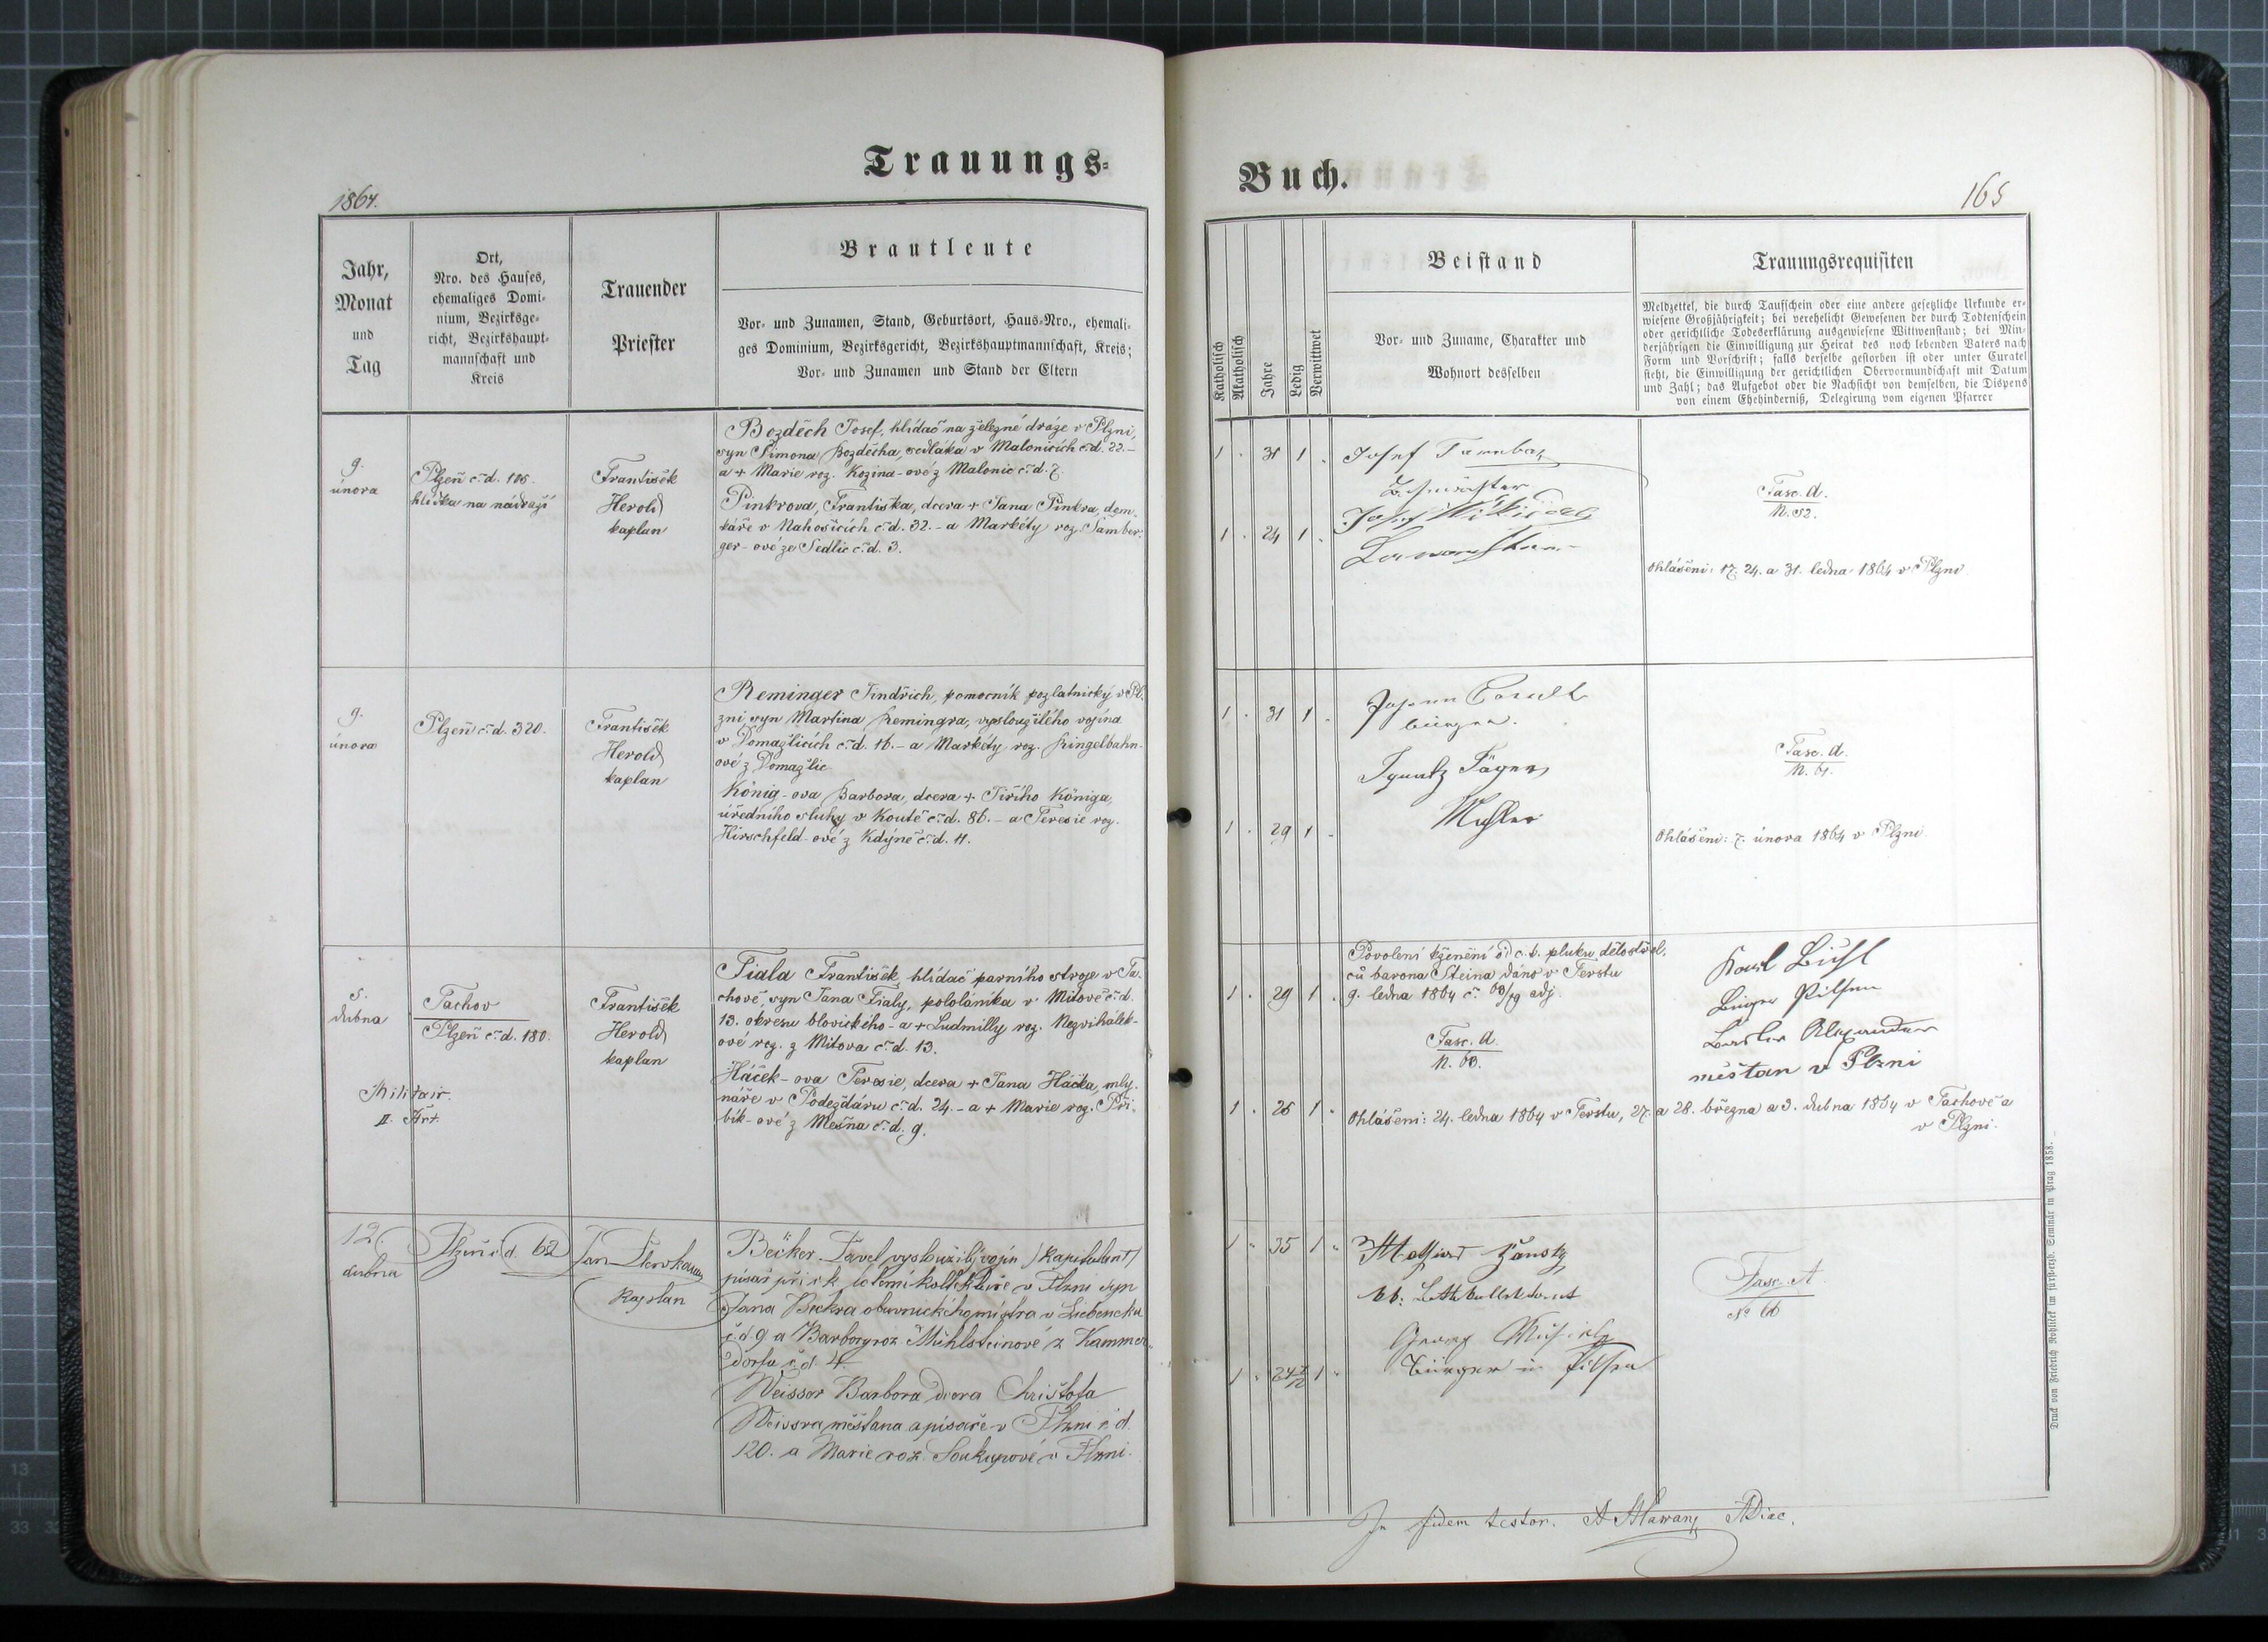 Trauungs-
1864.
Jahr,
Monat
und
Tag
Ort,
Nro. des Hauses,
ehemaliges Domi-
nium, Bezirksge-
richt, Bezirkshaupt-
mannschaft und
Kreis
Trauender
Priester
Brautleute
Vor- und Zunamen, Stand, Geburtsort, Haus-Nro., ehemali-
ges Dominium, Bezirksgericht, Bezirkshauptmannschaft, Kreis;
Vor- und Zunamen und Stand der Eltern
9.
února
Plzeň č. d. 105.
hlídka na nádraží
František
Herold
kaplan
Bozděch Josef, hlídač na železné dráze v Plzni,
syn Šimona Bozděcha, sedláka v Malonicích č. d. 22.-
a + Marie roz. Kozina-ové z Malonic č. d. 7.
Pinkrova, Františka, dcera + Jana Pinkra, dom-
káře v Nahošicích č. d. 32. - a Markéty roz. Samber-
ger-ové ze Sedlic č. d. 3.
9.
února
Plzeň č. d. 320.
František
Herold
kaplan
Reminger Jindřich, pomocník pozlatnický v Pl-
zni, syn Martina Remingra, vyslouzilého vojína
v Domažlicích č. d. 16. - a Markéty roz. Ringelhahn-
ové z Domažlic.
König-ova Barbora, dcera + Jiřího Königa,
úředního sluhy v Koutě č. d. 86. - a Teresie roz.
Hirschfeld-ové z Kdýně č. d. 11.
5.
dubna
Militair.
II. Art.
Tachov
Plzeň č. d. 180.
František
Herold
kaplan
Fiala František, hlídač parního stroje v Ta-
chově, syn Jana Fialy, pololáníka v Mítově č. d.
13. okresu blovického - a + Ludmilly roz. Nezvihálek-
ové roz. z Mítova č. d. 13.
Háček-ova Teresie, dcera + Jana Háčka, mly-
náře v Podeždáru č. d. 24. - a + Marie roz. Při-
bík-ové z Mešna č. d. 9.
12.
dubna
Plzeň č d. 62
Jan
kaplan
Becker Pavel vysloužilý vojín (kapitulant)
písař při c. k. loterní kollektuře v Plzni syn
Jana Beckra obuvnického mistra v
č. d 9 a Barbory roz Mühlsteinové z Kammer-
dorfu č. d 4.
Weisser Barbora dcera Christofa
Weissra měšťana a písaře v Plzni č. d.
120. a Marie roz. Soukupové v Plzni.
Buch.
165
Katholisch
Akatholisch
Jahre
Ledig
Verwittwet
Beistand
Vor- und Zuname, Charakter und
Wohnort desselben
Trauungsrequisiten
Meldzettel, die durch Taufschein oder eine andere gesetzliche Urkunde er-
wiesene Großjährigkeit; bei verehelicht Gewesenen der durch Todtenschein
oder gerichtliche Todeserklärung ausgewiesene Wittwenstand; bei Min-
derjährigen die Einwilligung zur Heirat des noch lebenden Vaters nach
Form und Vorschrift; falls derselbe gestorben ist oder unter Curatel
steht, die Einwilligung der gerichtlichen Obervormundschaft mit Datum
und Zahl; das Aufgebot oder die Nachsicht von demselben, die Dispens
von einem Ehehinderniß, Delegirung vom eigenen Pfarrer
1 . 31 1 .
1 . 24 1 .
Josef
Josef
Fasc. A.
N. 52.
Ohlášeni: 17. 24. a 31. ledna 1864 v Plzni
1 . 31 1 .
1 . 29 1 .
Johann
bürger.
Ignatz Jäger
Fasc. A.
N. 61.
Ohlášeni: 7. února 1864 v Plzni
1 . 29 1 .
1 . 26 1 .
Povolení k ženění od c. k. pluku dělostřel-
ců barona Steina dáno v Terstu
9. ledna 1864 č. 68/19 adj.
Fasc. A.
N. 60.
Karl
Bürger Pilsen
Alexander
měštan v Plzni
Ohlášeni: 24. ledna 1864 v Terstu, 27. a 28. března a 3. dubna 1864 v Tachově a
v Plzni.
1 . 35 1 .
1 . 24 1 .
Georg
bürger in Pilsen
Fasc. A.
No 66
In fidem testor.
Druck von Friedrich Rohliček im fürsterzb. Seminär in Prag 1858.